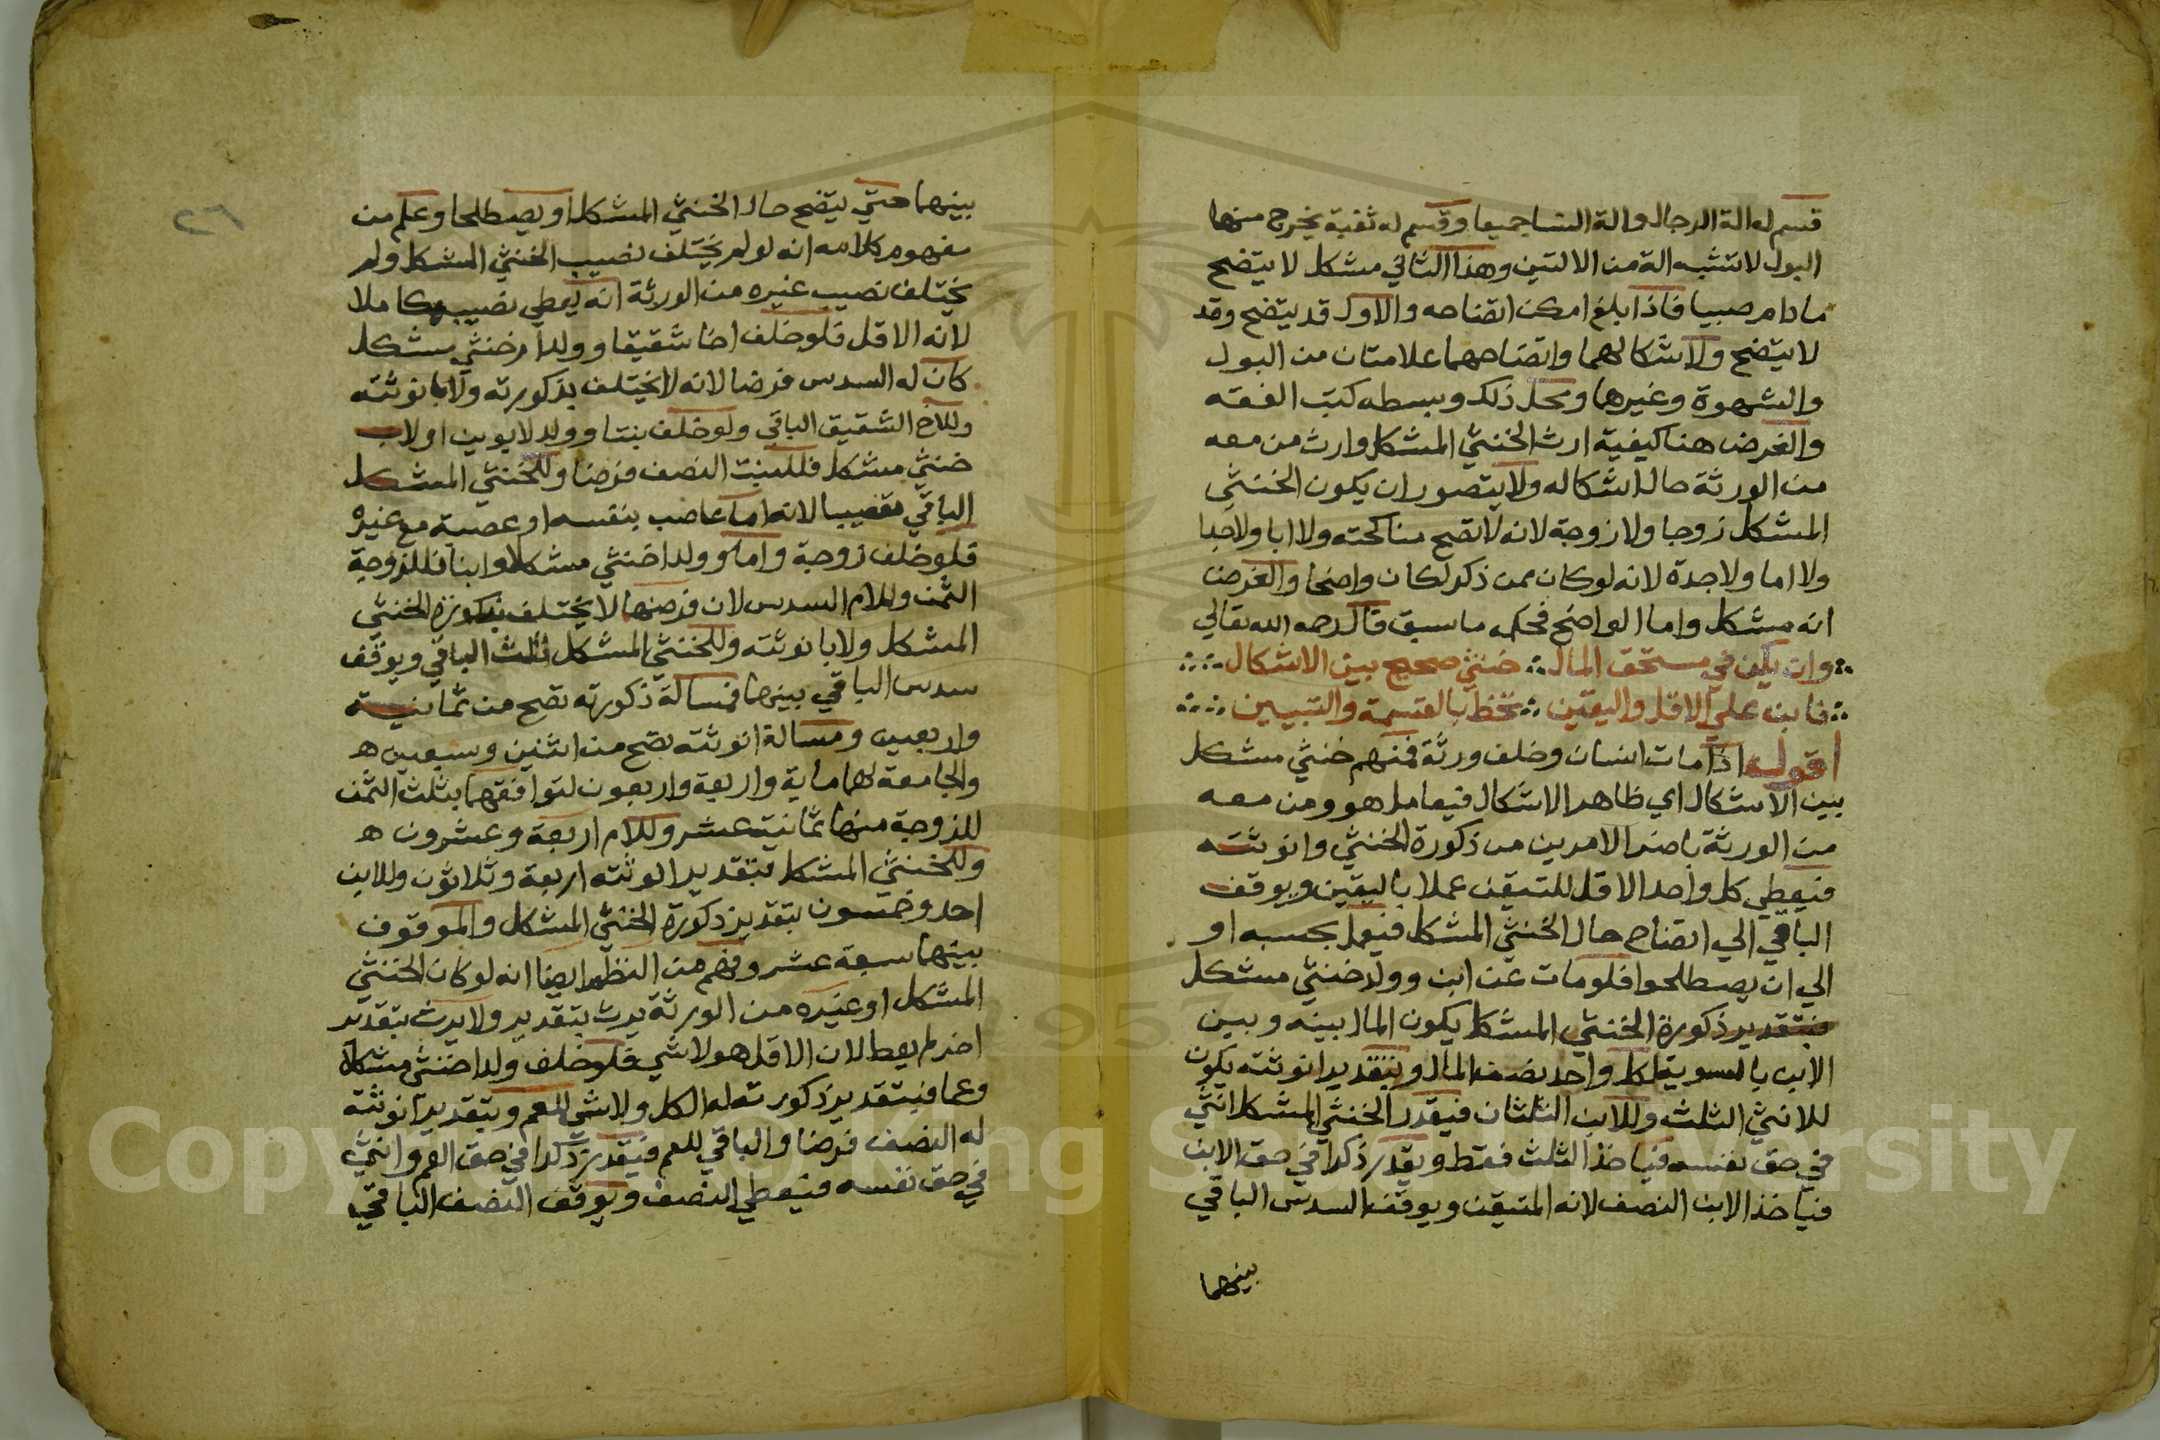 قسم له الة الرجال والة النسا جميعا وقسم له ثقبة يخرج منها
البول لا تشبه الة من الالتين وهذا الثاني مشكل لا يتضح
مادام صبيا فاذا بلغ امكن اتضاحه والاول قد يتضح وقد
لا يتضح ولاشكالهما واتضاحهما علامتان من البول
والشهوة وغيرها ومحل ذلك وبسطه كتب الفقه
والغرض هنا كيفية ارث الخنثي المشكل وارث من معه
من الورثة حال اشكاله ولا يتصور ان يكون الخنثي
المشكل زوجا ولا زوجة لانه لا تصح مناكحته ولا ابا ولا جدا
ولا اما ولا جدة لانه لو كان ممن ذكر لكان واضحا والغرض
انه مشكل واما الواضح فحكمه ما سبق قال رحمه الله تعالي
وان يكن في مستحق المال خنثي صحيح بين الاشكال
فابن علي الاقل واليقين تحظ بالقسمة والتبيين
اقول اذا مات انسان وخلف ورثة فمنهم خنثي مشكل
بين الاشكال اي ظاهر الاشكال فيعامل هو ومن معه
من الورثة باضر الامرين من ذكورة الخنثي وانوثته
فيعطي كل واحد الاقل للتيقن عملا باليقين ويوقف
الباقي الي اتضاح حال الخنثي المشكل فيعمل بحسبه او
الي ان يصطلحوا فلو مات عن ابن وولد خنثي مشكل
فبتقدير ذكورة الخنثي المشكل يكون المال بينه وبين
الابن بالسوية لكل واحد نصف المال وبتقدير انوثته يكون
للانثي الثلث وللابن الثلثان فيقدر الخنثي المشكل انثي
في حق نفسه فياخذ الثلث فقط ويقدر ذكرا في حق الابن
فياخذ الابن النصف لانه المتيقن ويوقف السدس الباقي
بينهما
٢٦
بينهما حتي يتضح حال الخنثي المشكل او يصطلحا وعلم من
مفهوم كلامه انه لو لم يختلف نصيب الخنثي المشكل ولم
يختلف نصيب غيره من الورثة انه يعطي نصيبه كاملا
لانه الاقل فلو خلف اخا شقيقا وولد ام خنثي مشكل
كان له السدس فرضا لانه لا يختلف بذكورته ولا بانوثته
وللاخ الشقيق الباقي ولو خلف بنتا وولد لابوين او لاب
خنثي مشكل فللبنت النصف فرضا وللخنثي المشكل
الباقي تعصيبا لانه اما عاصب بنفسه او عصبة مع غيره
فلو خلف زوجة واما وولدا خنثي مشكلا وابنا فللزوجة
الثمن وللام السدس لان فرضهما لا يختلف بذكورة الخنثي
المشكل ولا بانوثته وللخنثي المشكل ثلث الباقي ويوقف
سدس الباقي بينهما فمسالة ذكورته تصح من ثمانية
واربعين ومسالة انوثته تصح من اثنين وسبعين ه
والجامعة لهما ماية واربعة واربعون لتوافقهما بثلث الثمن
للزوجة منها ثمانية عشر وللام اربعة وعشرون ه
وللخنثي المشكل بتقدير انوثته اربعة وثلاثون وللابن
احد وخمسون بتقدير ذكورة الخنثي المشكل والموقوف
بينهما سبعة عشر وفهم من النظم ايضا انه لو كان الخنثي
المشكل او غيره من الورثة يرث بتقدير ولا يرث بتقدير
اخر لم يعط لان الاقل هو لا شي فلو خلف ولدا خنثي مشكلا
وعما فبتقدير ذكورته له الكل ولا شي للعم وبتقدير انوثته
له النصف فرضا والباقي للعم فيقدر ذكرا في حق العم وانثي
في حق نفسه فيعطي النصف ويوقف النصف الباقي